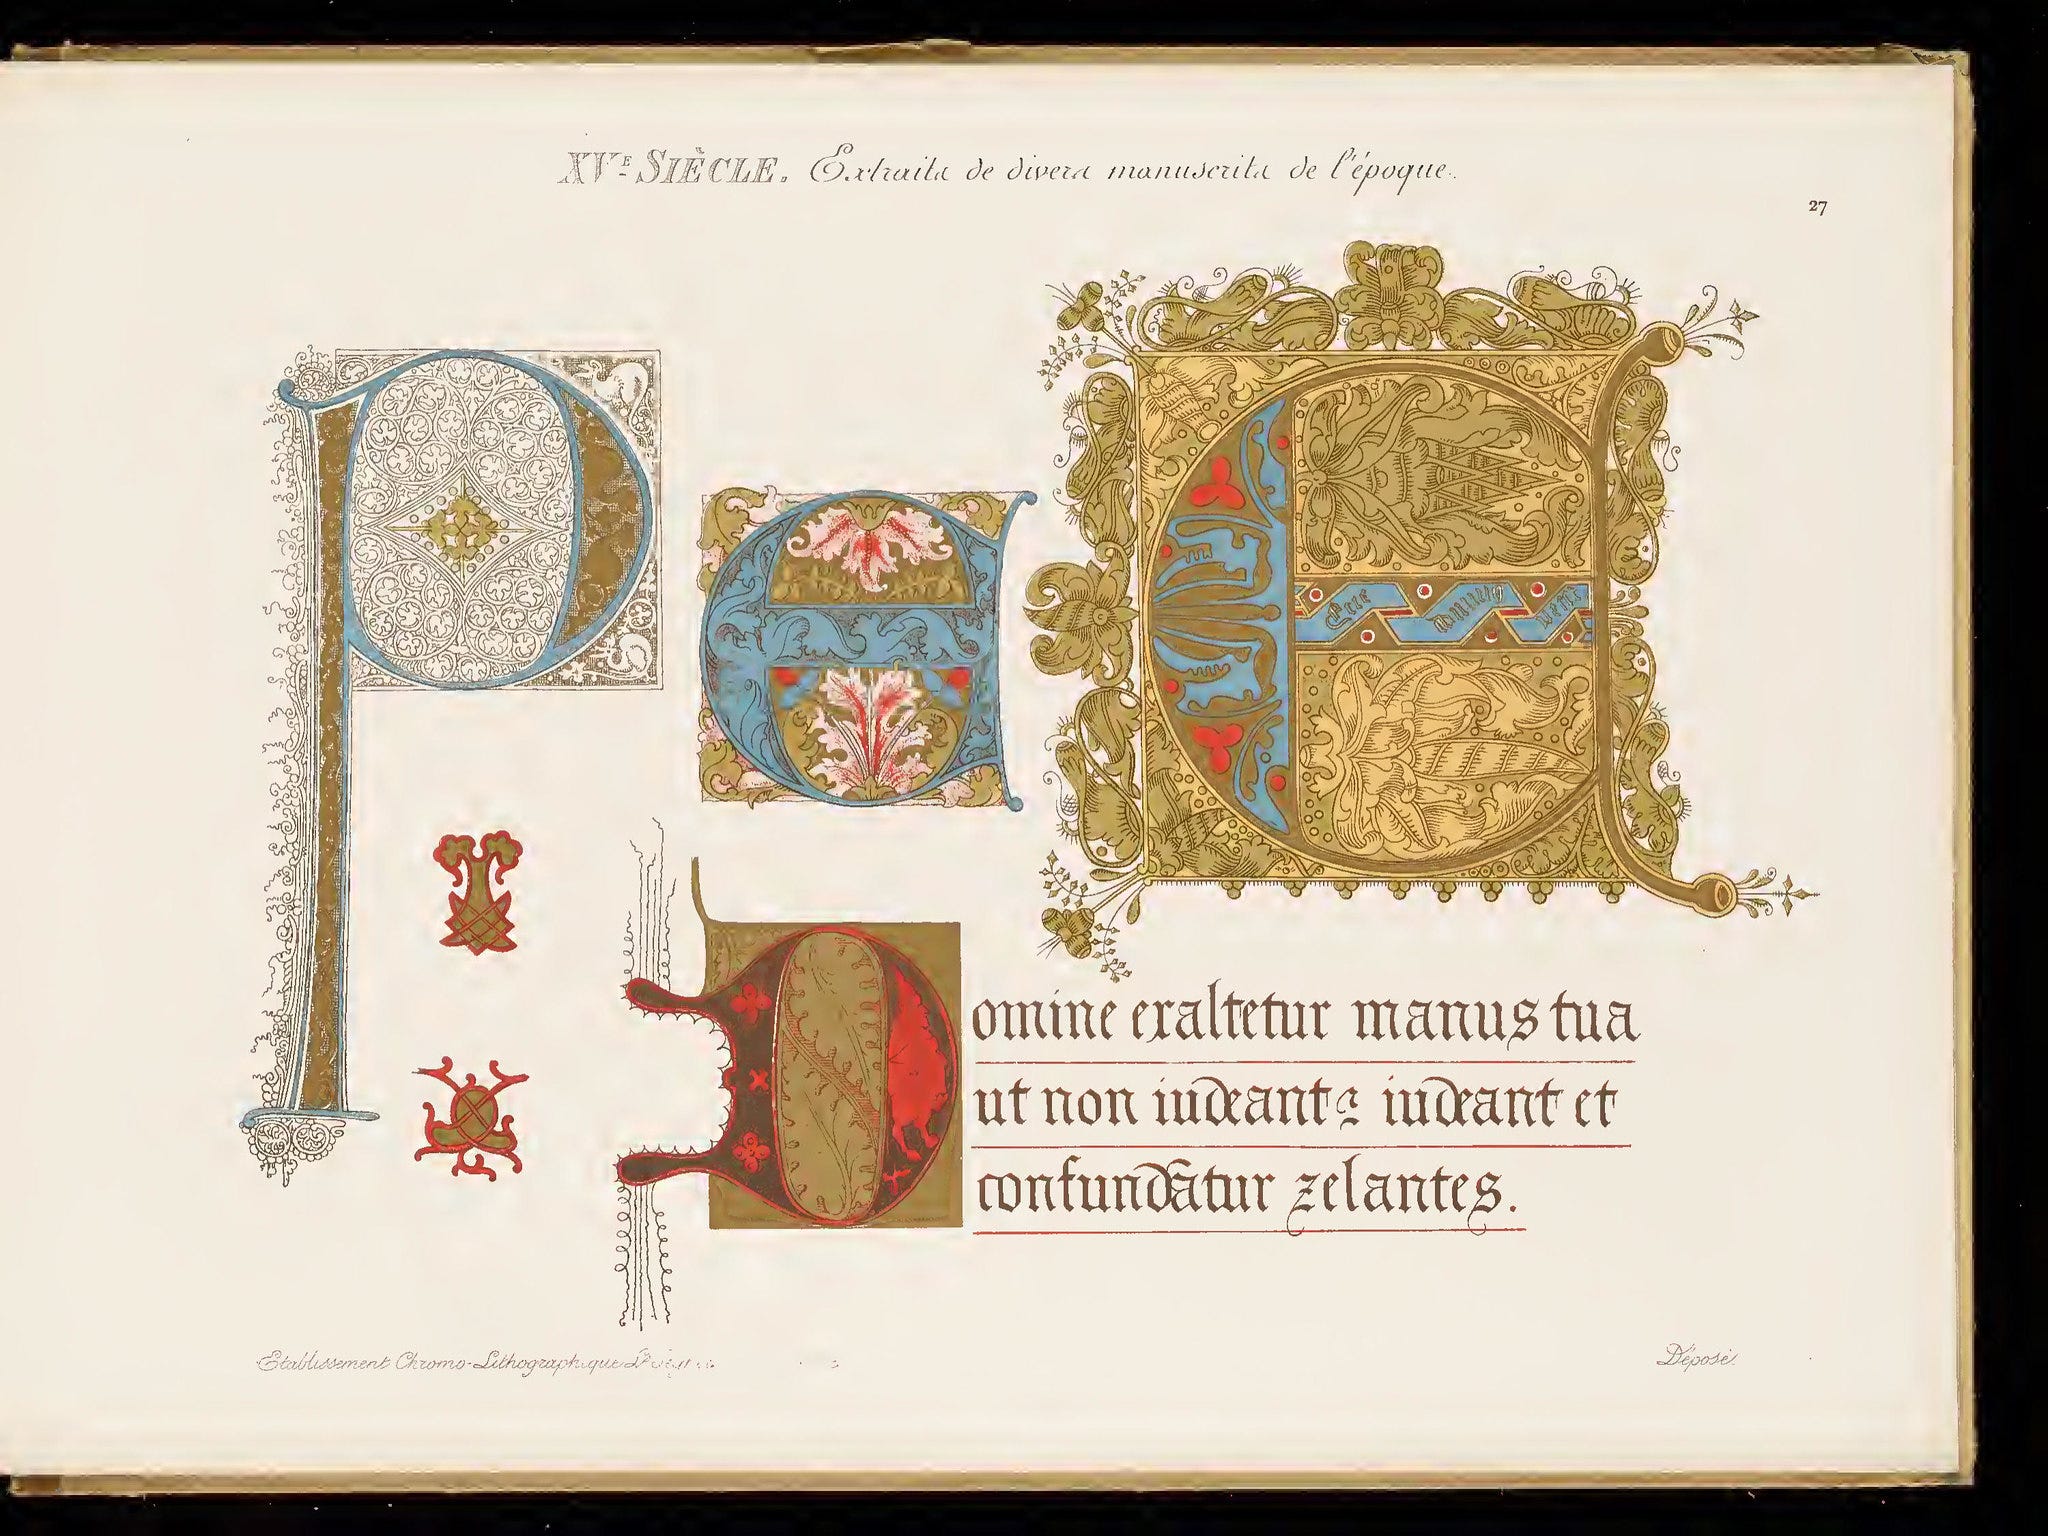 XVᴱ SIÈCLE. Extraits de divers manuscrits de l'époque.
27
P
e
E
Ecce
veni
Domine exaltetur manus tua
ut non iudeant ꝛ iudeant et
confundātur zelantes.
Etablissement Chromo-Lithographique
Déposé.